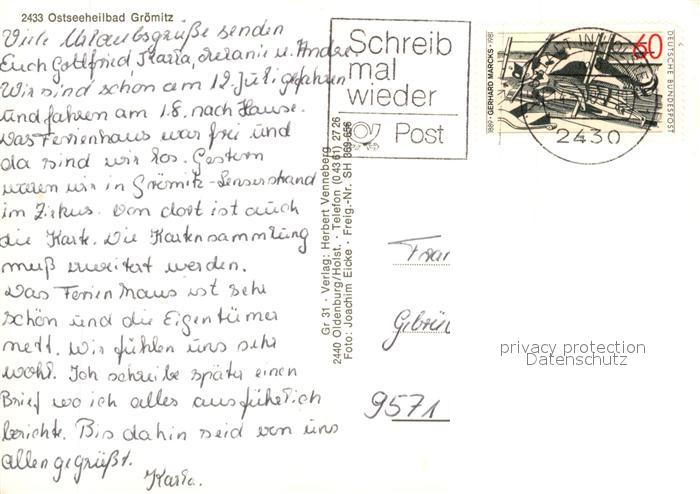 2433 Ostseeheilbad Grömitz
Viele Urlaubsgrüße senden
Euch Gottfried, Karla, Melanie u. Andre.
Wir sind schon am 12. Juli gefahren
und fahren am 1.8. nach Hause.
Das Ferienhaus war frei und
da sind wir los. Gestern
waren wir in Grömitz-Lensterstrand
im Zirkus. Von dort ist auch
die Karte. Die Kartensammlung
muß erweitert werden.
Das Ferienhaus ist sehr
schön und die Eigentümer
nett. Wir fühlen uns sehr
wohl. Ich schreibe später einen
Brief wo ich alles ausführlich
berichte. Bis dahin seid von uns
allen gegrüßt.
Karla.
Gr 31 · Verlag: Herbert Venneberg
2440 Oldenburg/Holst. · Telefon (0 43 61) 27 26
Foto: Joachim Eicke · Freig.-Nr. SH 369-656
Schreib
mal
wieder
Post
1889 · GERHARD MARCKS · 1981
60
DEUTSCHE BUNDESPOST
2430
9571
privacy protection
Datenschutz